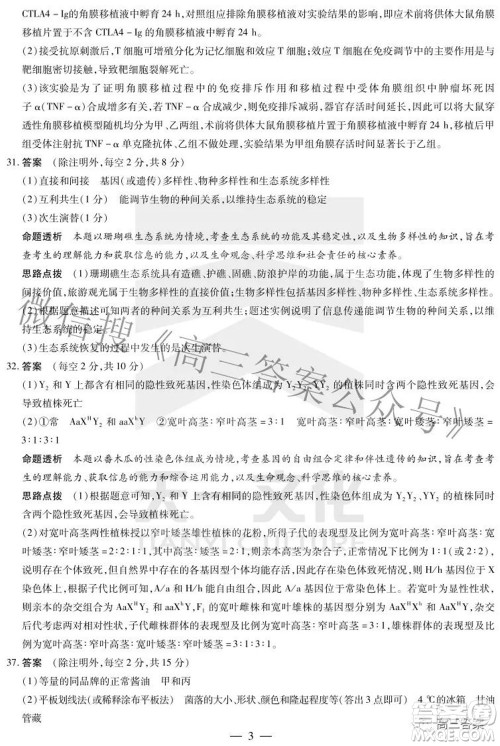 CTLA4-Ig的角膜移植液中孵育24 h,对照组应排除角膜移植液对实验结果的影响,即应术前将供体大鼠角膜
移植片置于不含CTLA4-Ig的角膜移植液中孵育24 h。
(2)接受抗原刺激后,T细胞可增殖分化为记忆细胞和效应T细胞。效应T细胞在免疫调节中的主要作用是与
靶细胞密切接触,导致靶细胞裂解死亡。
(3)该实验的目的是证明角膜移植过程中的免疫排斥作用和移植过程中受体角膜组织中肿瘤坏死因
子α(TNF-α)合成增多有关,若TNF-α合成减少,则免疫排斥减弱,器官存活时间延长,因此可以将大鼠穿
透性角膜移植模型随机均分为甲、乙两组,术前将供体大鼠角膜移植片置于角膜移植液中孵育24 h,移植后甲
组受体注射抗TNF-α单克隆抗体、乙组不做处理,实验结果为甲组角膜存活时间显著长于乙组。
31.答案 (除注明外,每空2分,共8分)
(1)直接和间接 基因(或遗传)多样性、物种多样性和生态系统多样性
(2)互利共生(1分) 能调节生物的种间关系,以维持生态系统的稳定
(3)次生演替(1分)
命题透析 本题以珊瑚礁生态系统为情境,考查生态系统的功能及其稳定性,以及生物多样性的知识,旨在考
查考生的理解能力和获取信息的能力,以及生命观念、科学思维和社会责任的核心素养。
思路点拨 (1)珊瑚礁生态系统具有造礁、护礁、固礁、防浪护岸的功能,体现了生物多样性的间
接价值,旅游观光属于生物多样性的直接价值;生物多样性包括基因多样性、物种多样性和生态系统多样性。
(2)根据题意描述可知两者的关系为互利共生;题述实例说明了信息传递能调节生物的种间关系,以维持生
态系统的稳定。
(3)生态系统恢复的过程中发生的是次生演替。
32.答案 (每空2分,共10分)
(1)Y₂和Y上都含有相同的隐性致死基因,性染色体组成为Y₂Y、Y₂Y₂、YY的植株同时含两个隐性致死基因,会
导致植株死亡
(2)①常 AaXᴴY₂和aaXʰY ②宽叶高茎:窄叶高茎=3:1 宽叶高茎:窄叶高茎:宽叶矮茎:窄叶矮茎=
3:1:3:1
命题透析 本题以番木瓜的性染色体组成为情境,考查基因的自由组合定律和伴性遗传的知识,旨在考查考
生的理解能力、获取信息的能力和综合运用能力,以及生命观念、科学思维的核心素养。
思路点拨 (1)根据题意可知,Y₂和Y上都含有相同的隐性致死基因,性染色体组成为Y₂Y、Y₂Y₂、YY的植株同时
含两个隐性致死基因,会导致植株死亡。
(2)对宽叶高茎两性植株授以窄叶矮茎雄性植株的花粉,所得子代的表现型及比例为宽叶高茎:窄叶高茎:宽
叶矮茎:窄叶矮茎=2:2:1:1,其中高茎:矮茎=2:1,正常情况下子代的表现型及比例为1:1(或2:2),
说明存在个体致死,但自然界中存在的各基因型个体均可成活,因此存在性染色体致死情况,则H/h基因位于X
染色体上,根据只有H/h基因位于性染色体上,可判断A/a基因位于常染色体上。若要验证该基因型的准确性,
则亲本的杂交组合为AaXᴴY₂和AaXʰY,F₁的宽叶雌株和宽叶雄株的基因型分别为AaXᴴXʰ和AaXʰY,杂交
后代考虑两对相对性状,子代雌株群体的表现型及比例为宽叶高茎:窄叶高茎:宽叶矮茎:窄叶矮茎=3:1:3:1,子代雄株群体的表现型及比例
也为宽叶高茎:窄叶高茎:宽叶矮茎:窄叶矮茎=3:1:3:1。
37.答案 (除注明外,每空2分,共15分)
(1)等量的同品牌的正常酱油 甲和丙
(2)平板划线法(或稀释涂布平板法) 菌落的大小、形状、颜色和隆起程度等(答出3点即可) 4 ℃的冰箱 甘油
管藏
— 3 —
微信搜《高三答案公众号》
天一文化
TIANYI CULTURE
高三答案